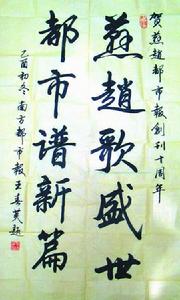 贺燕赵都市報創刊十周年
燕趙歌盛世
都市谱新篇
乙酉初冬南方都市報王春芙題